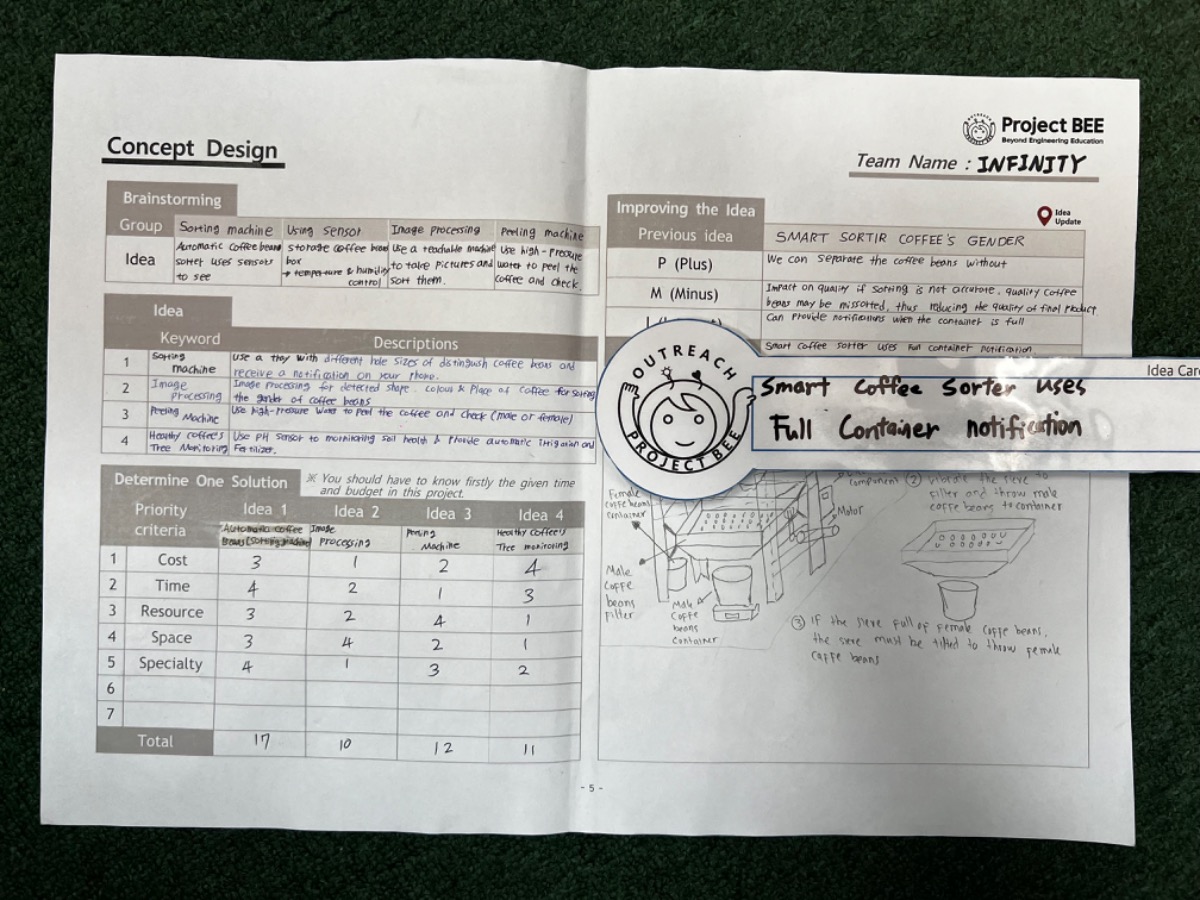 Concept Design
Project BEE
Beyond Engineering Education
Team Name : INFINITY
Brainstorming
Group
Sorting machine
Using sensor
Image processing
Peeling machine
Idea
Automatic coffee beans
sorter uses sensors
to see
storage coffee bean
box
→ temperture & humidity
control
Use a teachable machine
to take pictures and
sort them.
Use high-pressure
water to peel the
coffee and check.
Idea
Keyword
Descriptions
1
Sorting
machine
Use a tray with different hole sizes of distinguish coffee beans and
receive a notification on your phone.
2
Image
processing
Image processing for detected shape. colour & Place of coffee for sorting
the gender of coffee beans
3
Peeling Machine
Use high-pressure water to peel the coffee and check (male or female)
4
Healthy coffee's
Tree Monitoring
Use PH sensor to mornitoring soil health & Provide automatic irrigation and
Fertilizer.
Determine One Solution
※ You should have to know firstly the given time
and budget in this project.
Priority
criteria
Idea 1
Idea 2
Idea 3
Idea 4
Automatic coffee
Beans (Sorting Machine)
Image
Processing
Peeling
Machine
Healthy coffee's
Tree monitoring
1 Cost 3 1 2 4
2 Time 4 2 1 3
3 Resource 3 2 4 1
4 Space 3 4 2 1
5 Specialty 4 1 3 2
6
7
Total 17 10 12 11
Improving the Idea
Idea
Update
Previous idea
SMART SORTIR COFFEE'S GENDER
P (Plus)
We can separate the coffee beans without
M (Minus)
Impact on quality if sorting is not accurate, quality coffee
beans may be missorted, thus reducing the quality of final product
Can provide notifications when the container is full
Smart coffee sorter uses Full container notification
Idea Car
OUTREACH
PROJECT BEE
Smart Coffee Sorter uses
Full Container notification
Female
coffe beans
container
component
Motor
Male
coffe
beans
filter
Male
Coffe
beans
container
② vibrate the sieve to
filter and throw male
coffe beans to container
③ If the sieve full of female coffe beans,
the sieve must be tilted to throw female
coffe beans
- 5 -